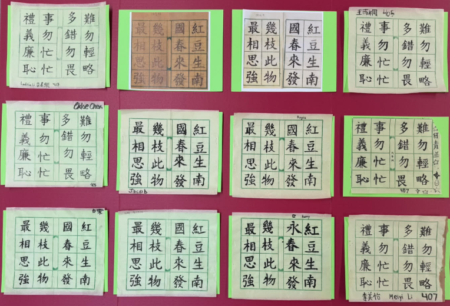 禮義廉恥
事勿忙忙
多錯勿畏
難勿輕略
紅豆生南
國春來發
幾枝此物
最相思強
紅豆生南
國春來發
幾枝此物
最相思強
禮義廉恥
事勿忙忙
多錯勿畏
難勿輕略
Chloe Chen
禮義廉恥
事勿忙忙
多錯勿畏
難勿輕略
紅豆生南
國春來發
幾枝此物
最相思強
紅豆生南
國春來發
幾枝此物
最相思強
禮義廉恥
事勿忙忙
多錯勿畏
難勿輕略
407
紅豆生南
國春來發
幾枝此物
最相思強
紅豆生南
國春來發
幾枝此物
最相思強
紅豆生南
永春來發
幾枝此物
最相思強
禮義廉恥
事勿忙忙
多錯勿畏
難勿輕略
Meiyi Li 407